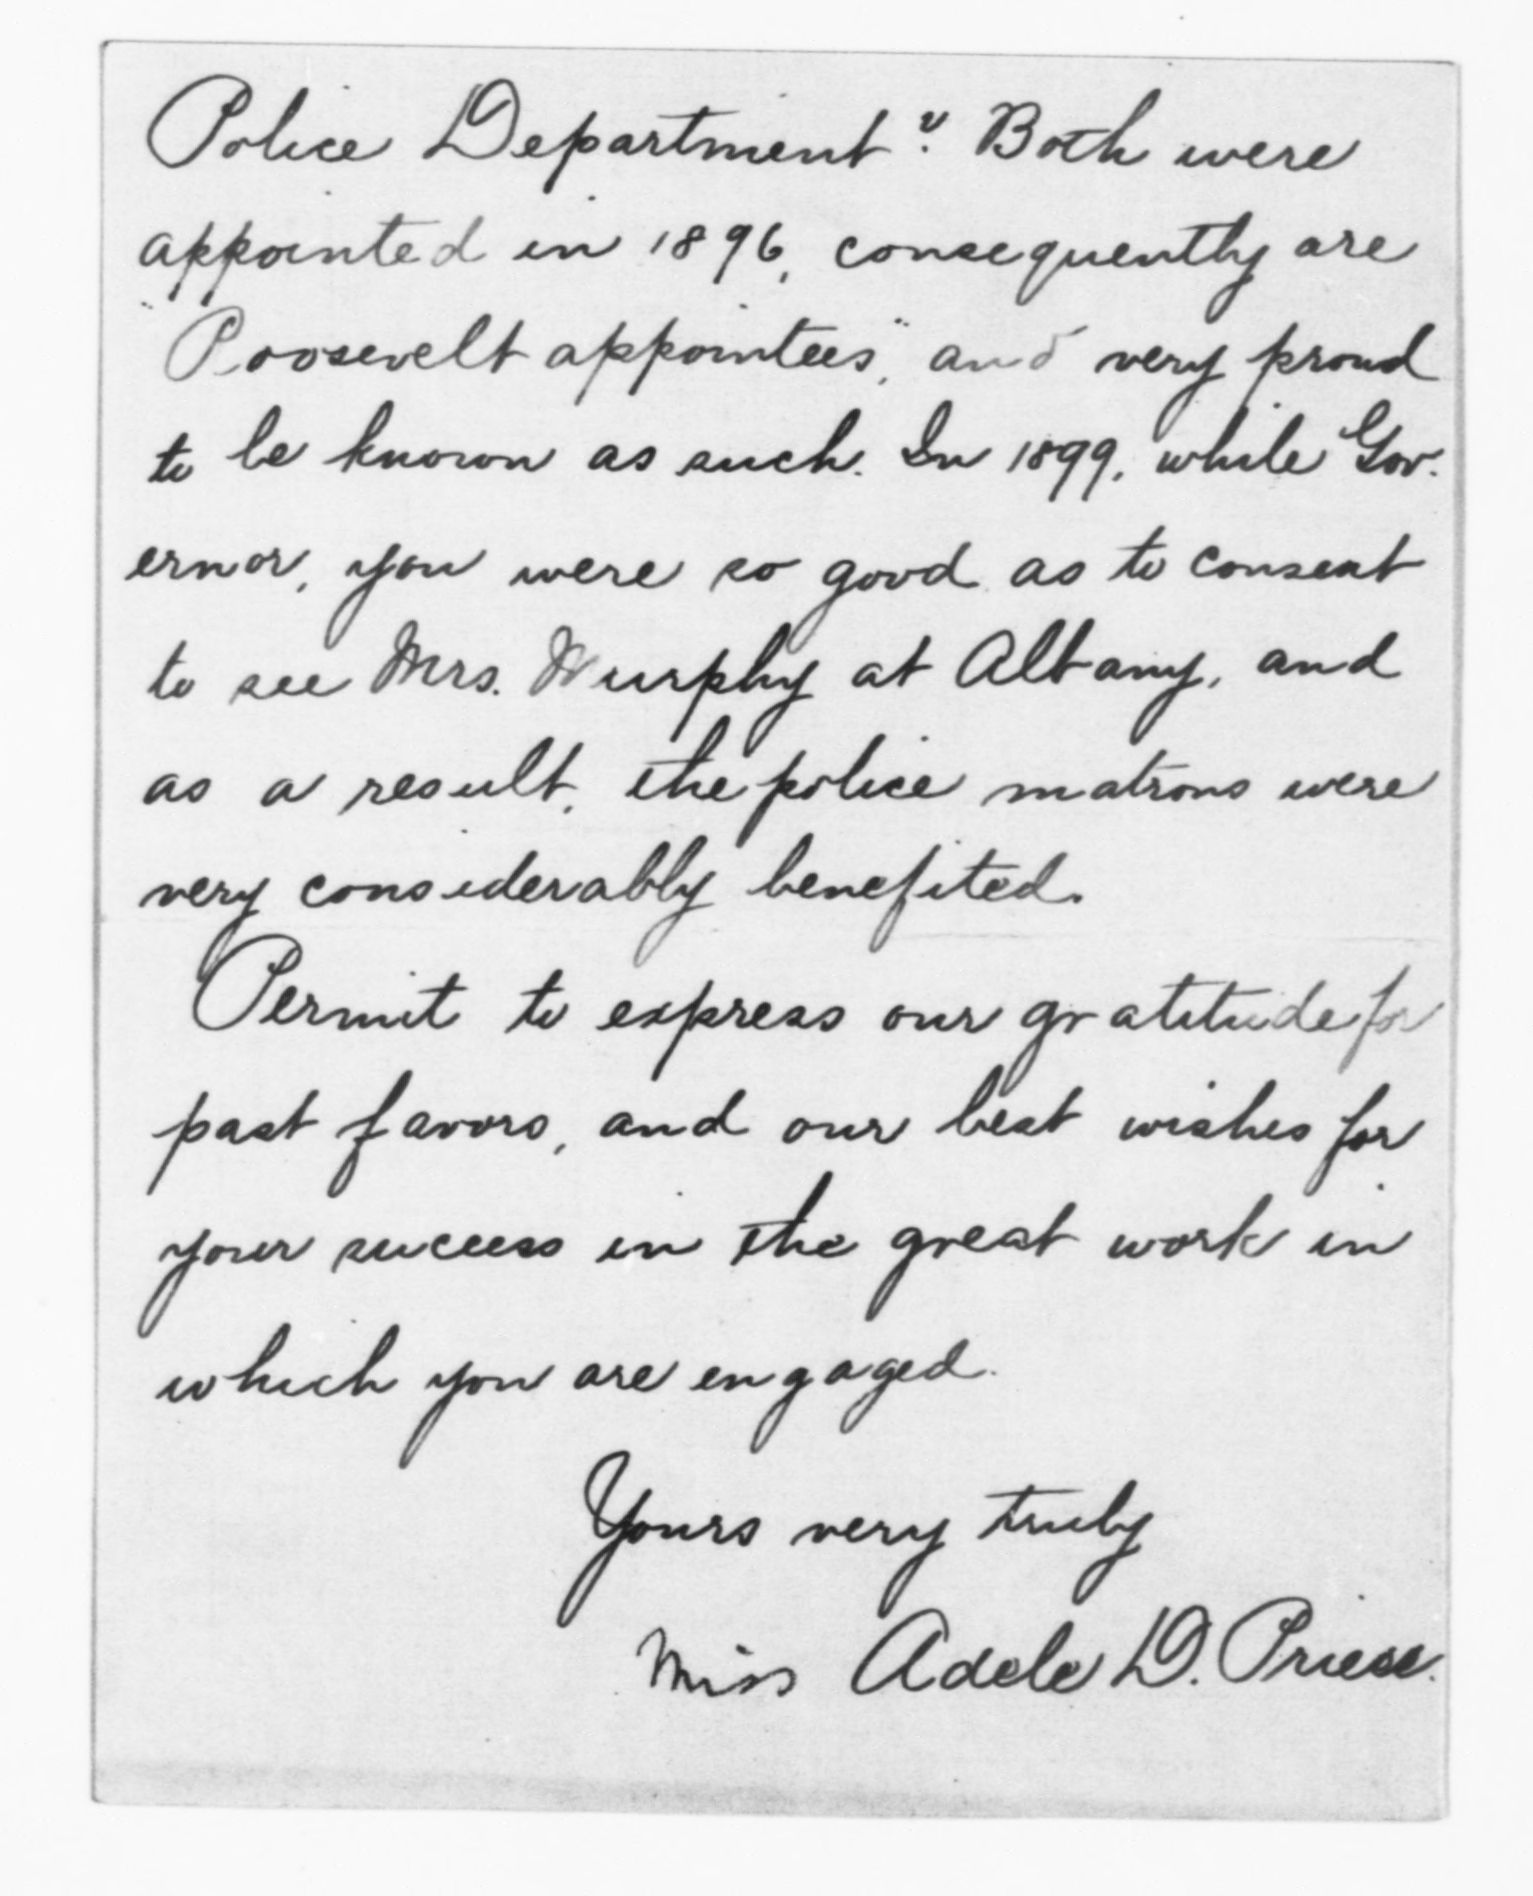 Police Department". Both were
appointed in 1896, consequently are
"Roosevelt appointees", and very proud
to be known as such. In 1899, while Gov-
ernor, you were so good as to consent
to see Mrs. Murphy at Albany, and
as a result, the police matrons were
very considerably benefited.
Permit to express our gratitude for
past favors, and our best wishes for
your success in the great work in
which you are engaged.
Yours very truly
Miss Adele D. Priess.